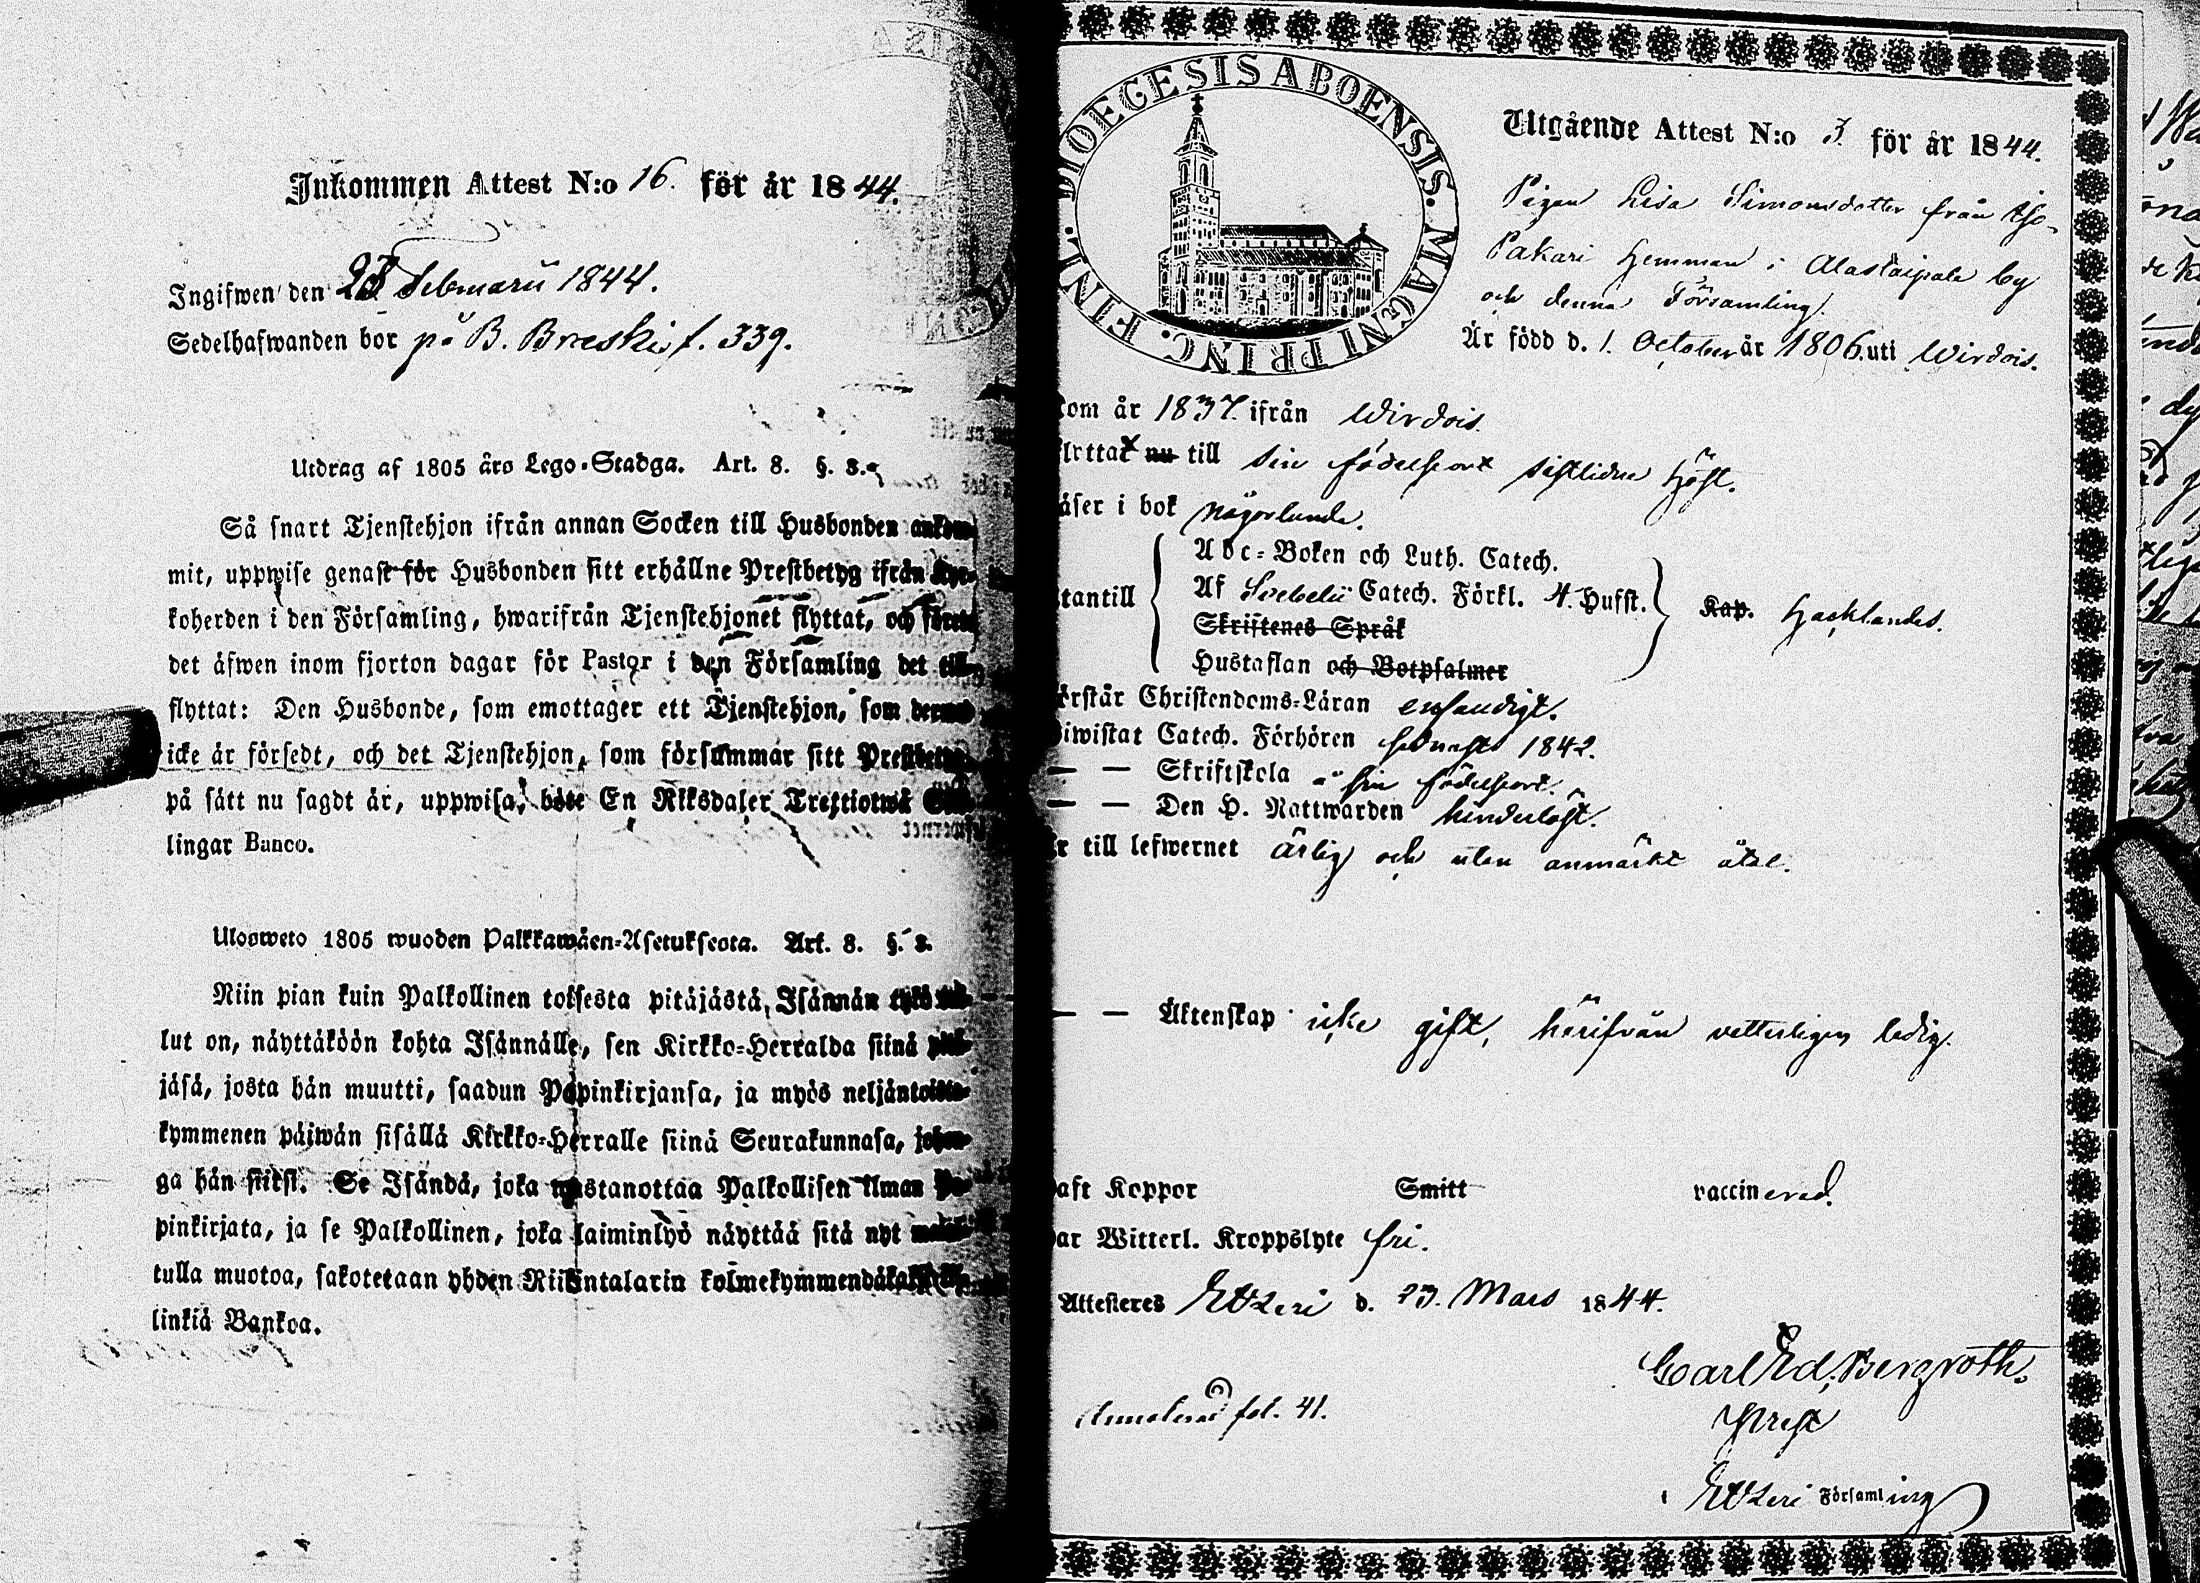 Inkommen Attest N:o 16. för år 1844.
Ingifwen den 23 Februarii 1844.
Sedelhafwanden bor på B. Braskis f. 339.
Utdrag af 1805 års Lego-Stadga. Art. 8. §. 8.
Så snart Tjenstehjon ifrån annan Socken till Husbonden ankom-
mit, uppwise genast för Husbonden sitt erhållne Prestbetyg ifrån Kyr-
koherden i den Församling, hwarifrån Tjenstehjonet flyttat, och förete
det äfwen inom fjorton dagar för Pastor i den Församling det till-
flyttat: Den Husbonde, som emottager ett Tjenstehjon, som dermed
icke är försedt, och det Tjenstehjon, som försummar sitt Prestbetyg
på sätt nu sagdt är, uppwisa, böte En Riksdaler Trettiotwå Skil-
lingar Banco.
Ulosweto 1805 wuoden Palkkawäen-Asetuksesta. Art. 8. §. 8.
Niin pian kuin Palkollinen toisesta pitäjästä, Isännän tykö tul-
lut on, näyttäköön kohta Isännälle, sen Kirkko-Herralda siinä pitä-
jäsä, josta hän muutti, saadun Papinkirjansa, ja myös neljäntoista-
kymmenen päiwän sisällä Kirkko-Herralle siinä Seurakunnasa, johon-
ga hän siirsi. Se Isändä, joka wastanottaa Palkollisen ilman Pa-
pinkirjata, ja se Palkollinen, joka laiminlyö näyttää sitä nyt
tulla muotoa, sakotetaan yhden Riikintalarin kolmekymmendäkaksi
linkiä Bankoa.
DIOECESIS ABOENSIS. MAGNI PRINC. FINL.
Utgående Attest N:o 3. för år 1844.
Pigan Lisa Simonsdotter från
Pakari Hemman i Alastaipale by
och denna Församling.
Är född d. 1. October år 1806. uti Wirdois.
kom år 1837. ifrån Wirdois.
flyttat nu till sin födelseort sistlidne Höst.
läser i bok någorlunda.
Abc-Boken och Luth. Catech.
utantill Af Svebelii Catech. Förkl. 4. Hufst. Kap. Hacklandes.
Skriftenes Språk
Hustaflan och Botpsalmer
förstår Christendoms-Läran enfaldigt.
biwistat Catech. Förhören sednast 1842.
— — Skriftskola å sin födelseort.
— — Den H. Nattwarden hinderlöst.
Är till lefwernet ärlig och utan anmärkt åtal.
— — Äktenskap icke gift, härifrån vetterligen ledig.
haft Koppor Smitt vaccinerad.
har Witterl. Kroppslyte fri.
Attesteras Etzeri d. 23. Mars 1844.
Carl Ed. Bergroth.
Prest
fol. 41.
i Etzeri Församling